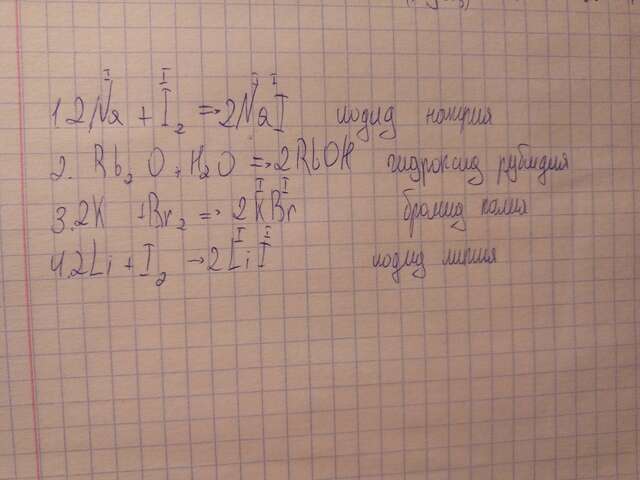 1 2Na + I₂ => 2NaI иодид натрия
2. Rb₂O + H₂O => 2RbOH гидроксид рубидия
3. 2K + Br₂ => 2KBr бромид калия
4. 2Li + I₂ → 2LiI иодид лития